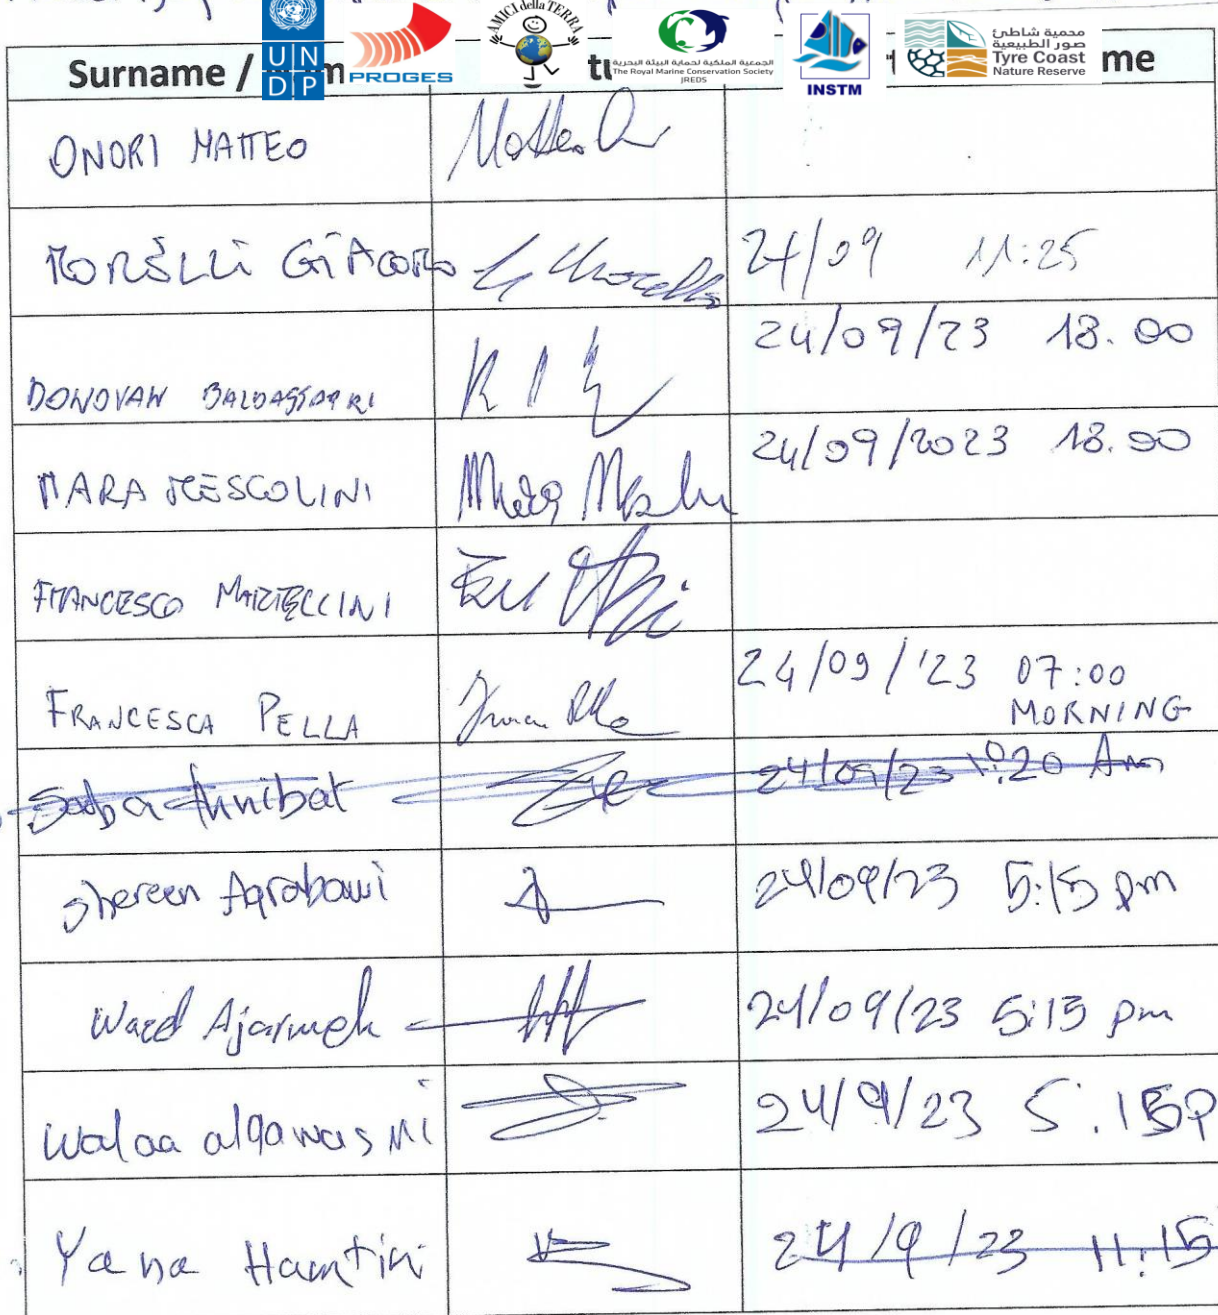 UN
DP
PROGES
AMICI della TERRA
الجمعية الملكية لحماية البيئة البحرية
The Royal Marine Conservation Society
JREDS
INSTM
محمية شاطئ
صور الطبيعية
Tyre Coast
Nature Reserve
Surname /
me
ONORI MATTEO
MORELLI GIACOMO 24/09 11:25
DONOVAN BALDASSARRI 24/09/23 18.00
MARA MESCOLINI 24/09/2023 18.00
FRANCESCO MARTECCINI
FRANCESCA PELLA 24/09/'23 07:00
MORNING
Saba 24/09/23 Am
Shereen Aqrabawi 24/09/23 5:15 pm
Ward Ajarmeh 24/09/23 5:15 pm
Walaa alqawasmi 24/9/23 5.15P
Yana Hamtini 24/9/23 11:15